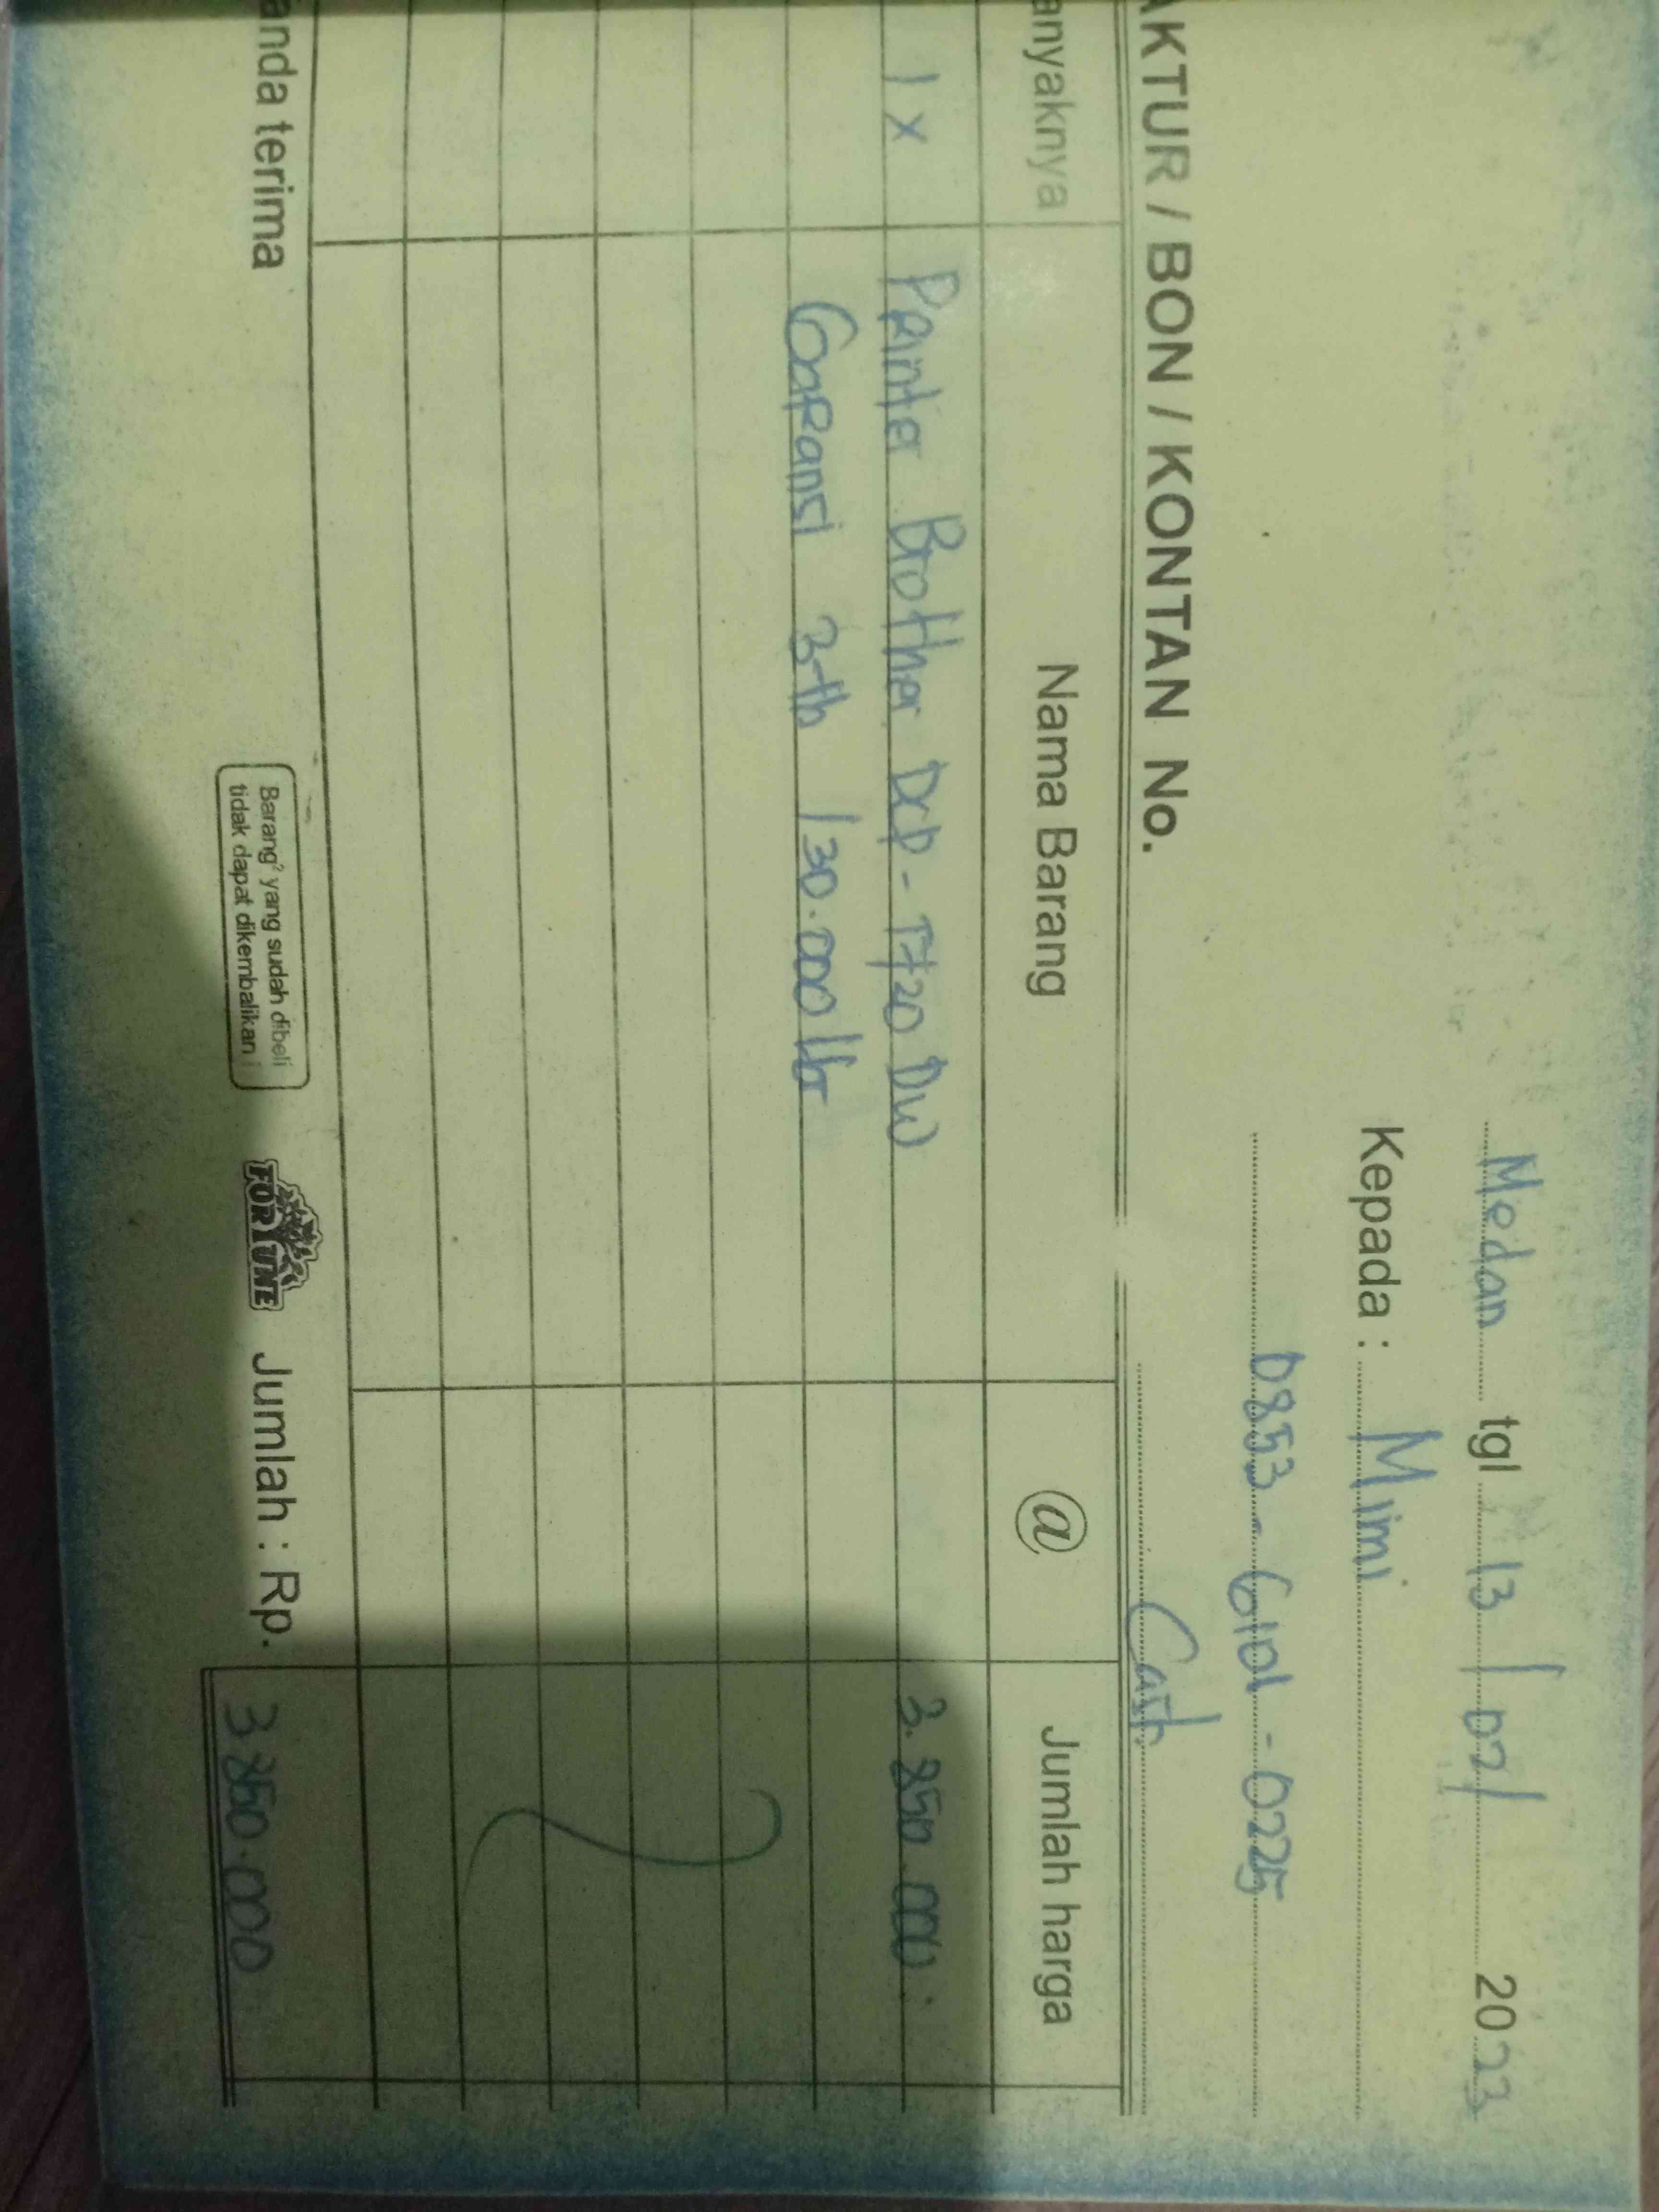 Medan tgl 13 / 02 / 2023
Kepada : Mimi
0853 - 6101 - 0225
AKTUR / BON / KONTAN No. Cash
anyaknya Nama Barang @ Jumlah harga
1 x Printer Brother DCP - T720 DW 3.850.000
Garansi 3 th / 30.000 lbr
anda terima
Barang² yang sudah dibeli
tidak dapat dikembalikan
FORTUNE
Jumlah : Rp. 3 850.000